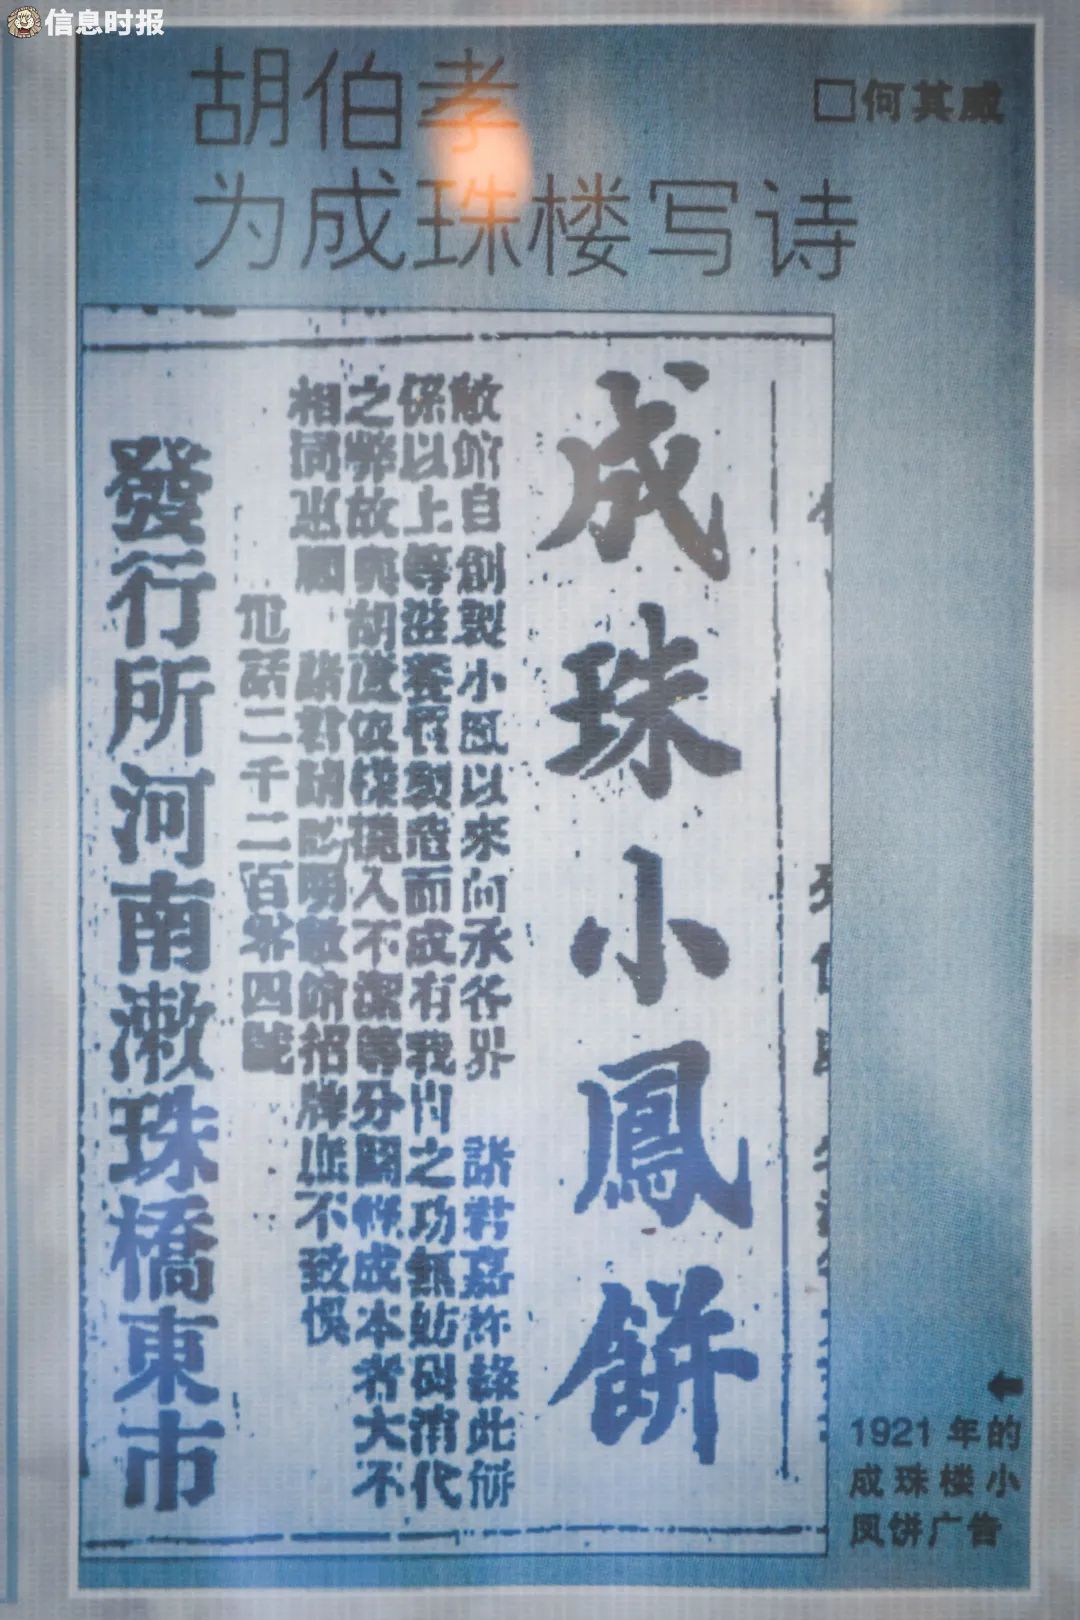 信息时报
胡伯孝
为成珠楼写诗
□何其威
成珠小鳳餅
敝館自創製小鳳以來向承各界 諸君嘉許緣此餅
保以上等滋養 製造而成有 之功無 消代
之弊故與胡 入不潔等分 成本者大不
相同惠顧 諸君請 明敝館招牌庶不致悞
話二千二百零四號
發行所河南漱珠橋東市
1921年的
成珠楼小
凤饼广告